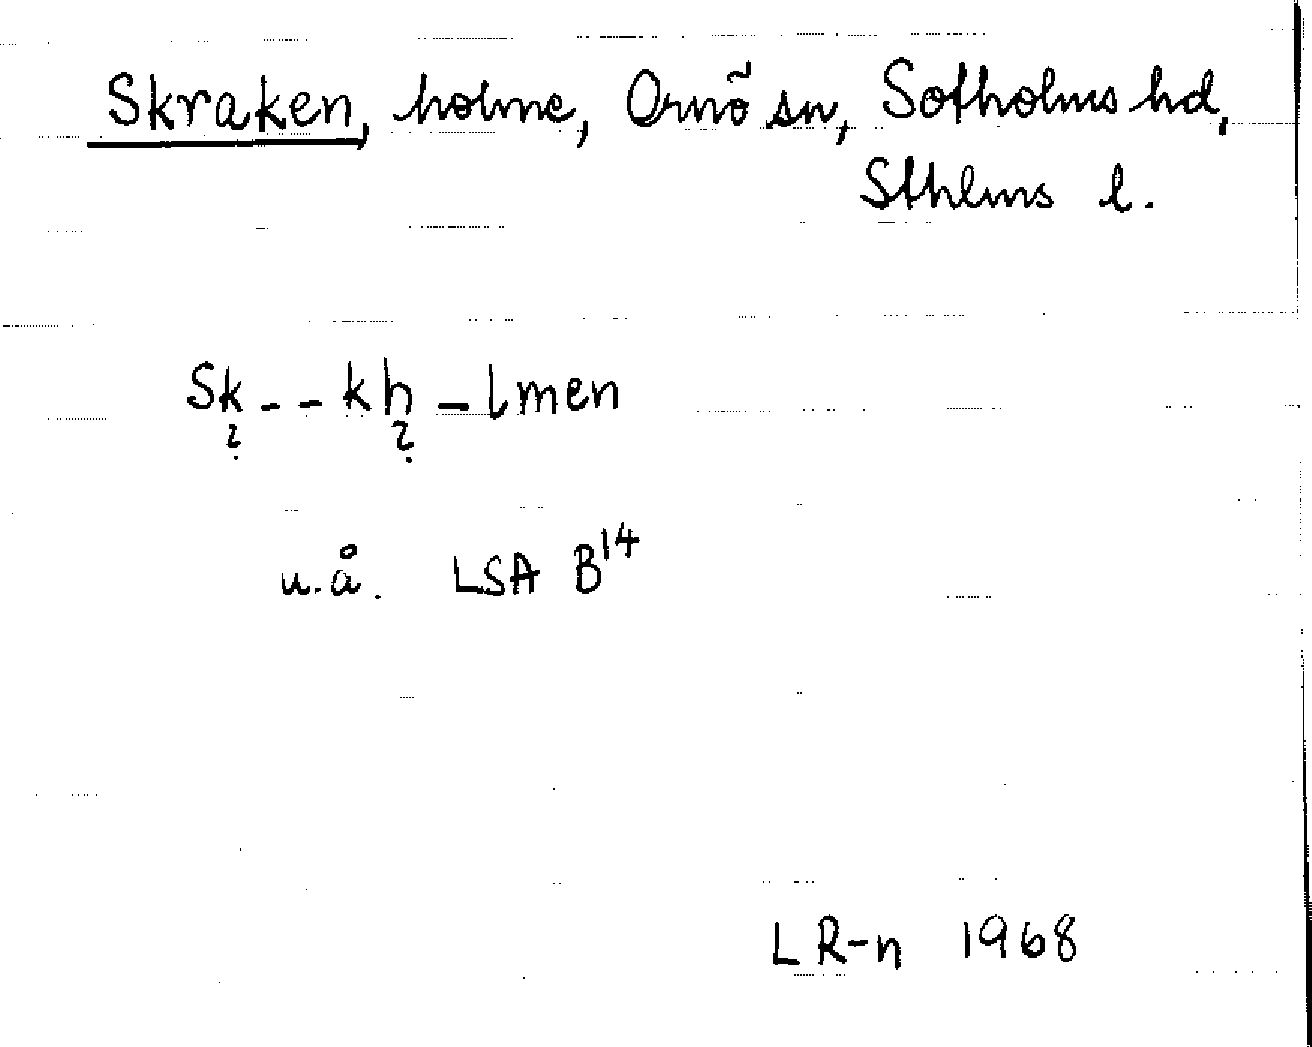 Skraken, holme, Ornö sn, Sotholms hd,
Sthlms l.
Sk - - kh - lmen
? ?
u.å. LSA B14
LR-n 1968